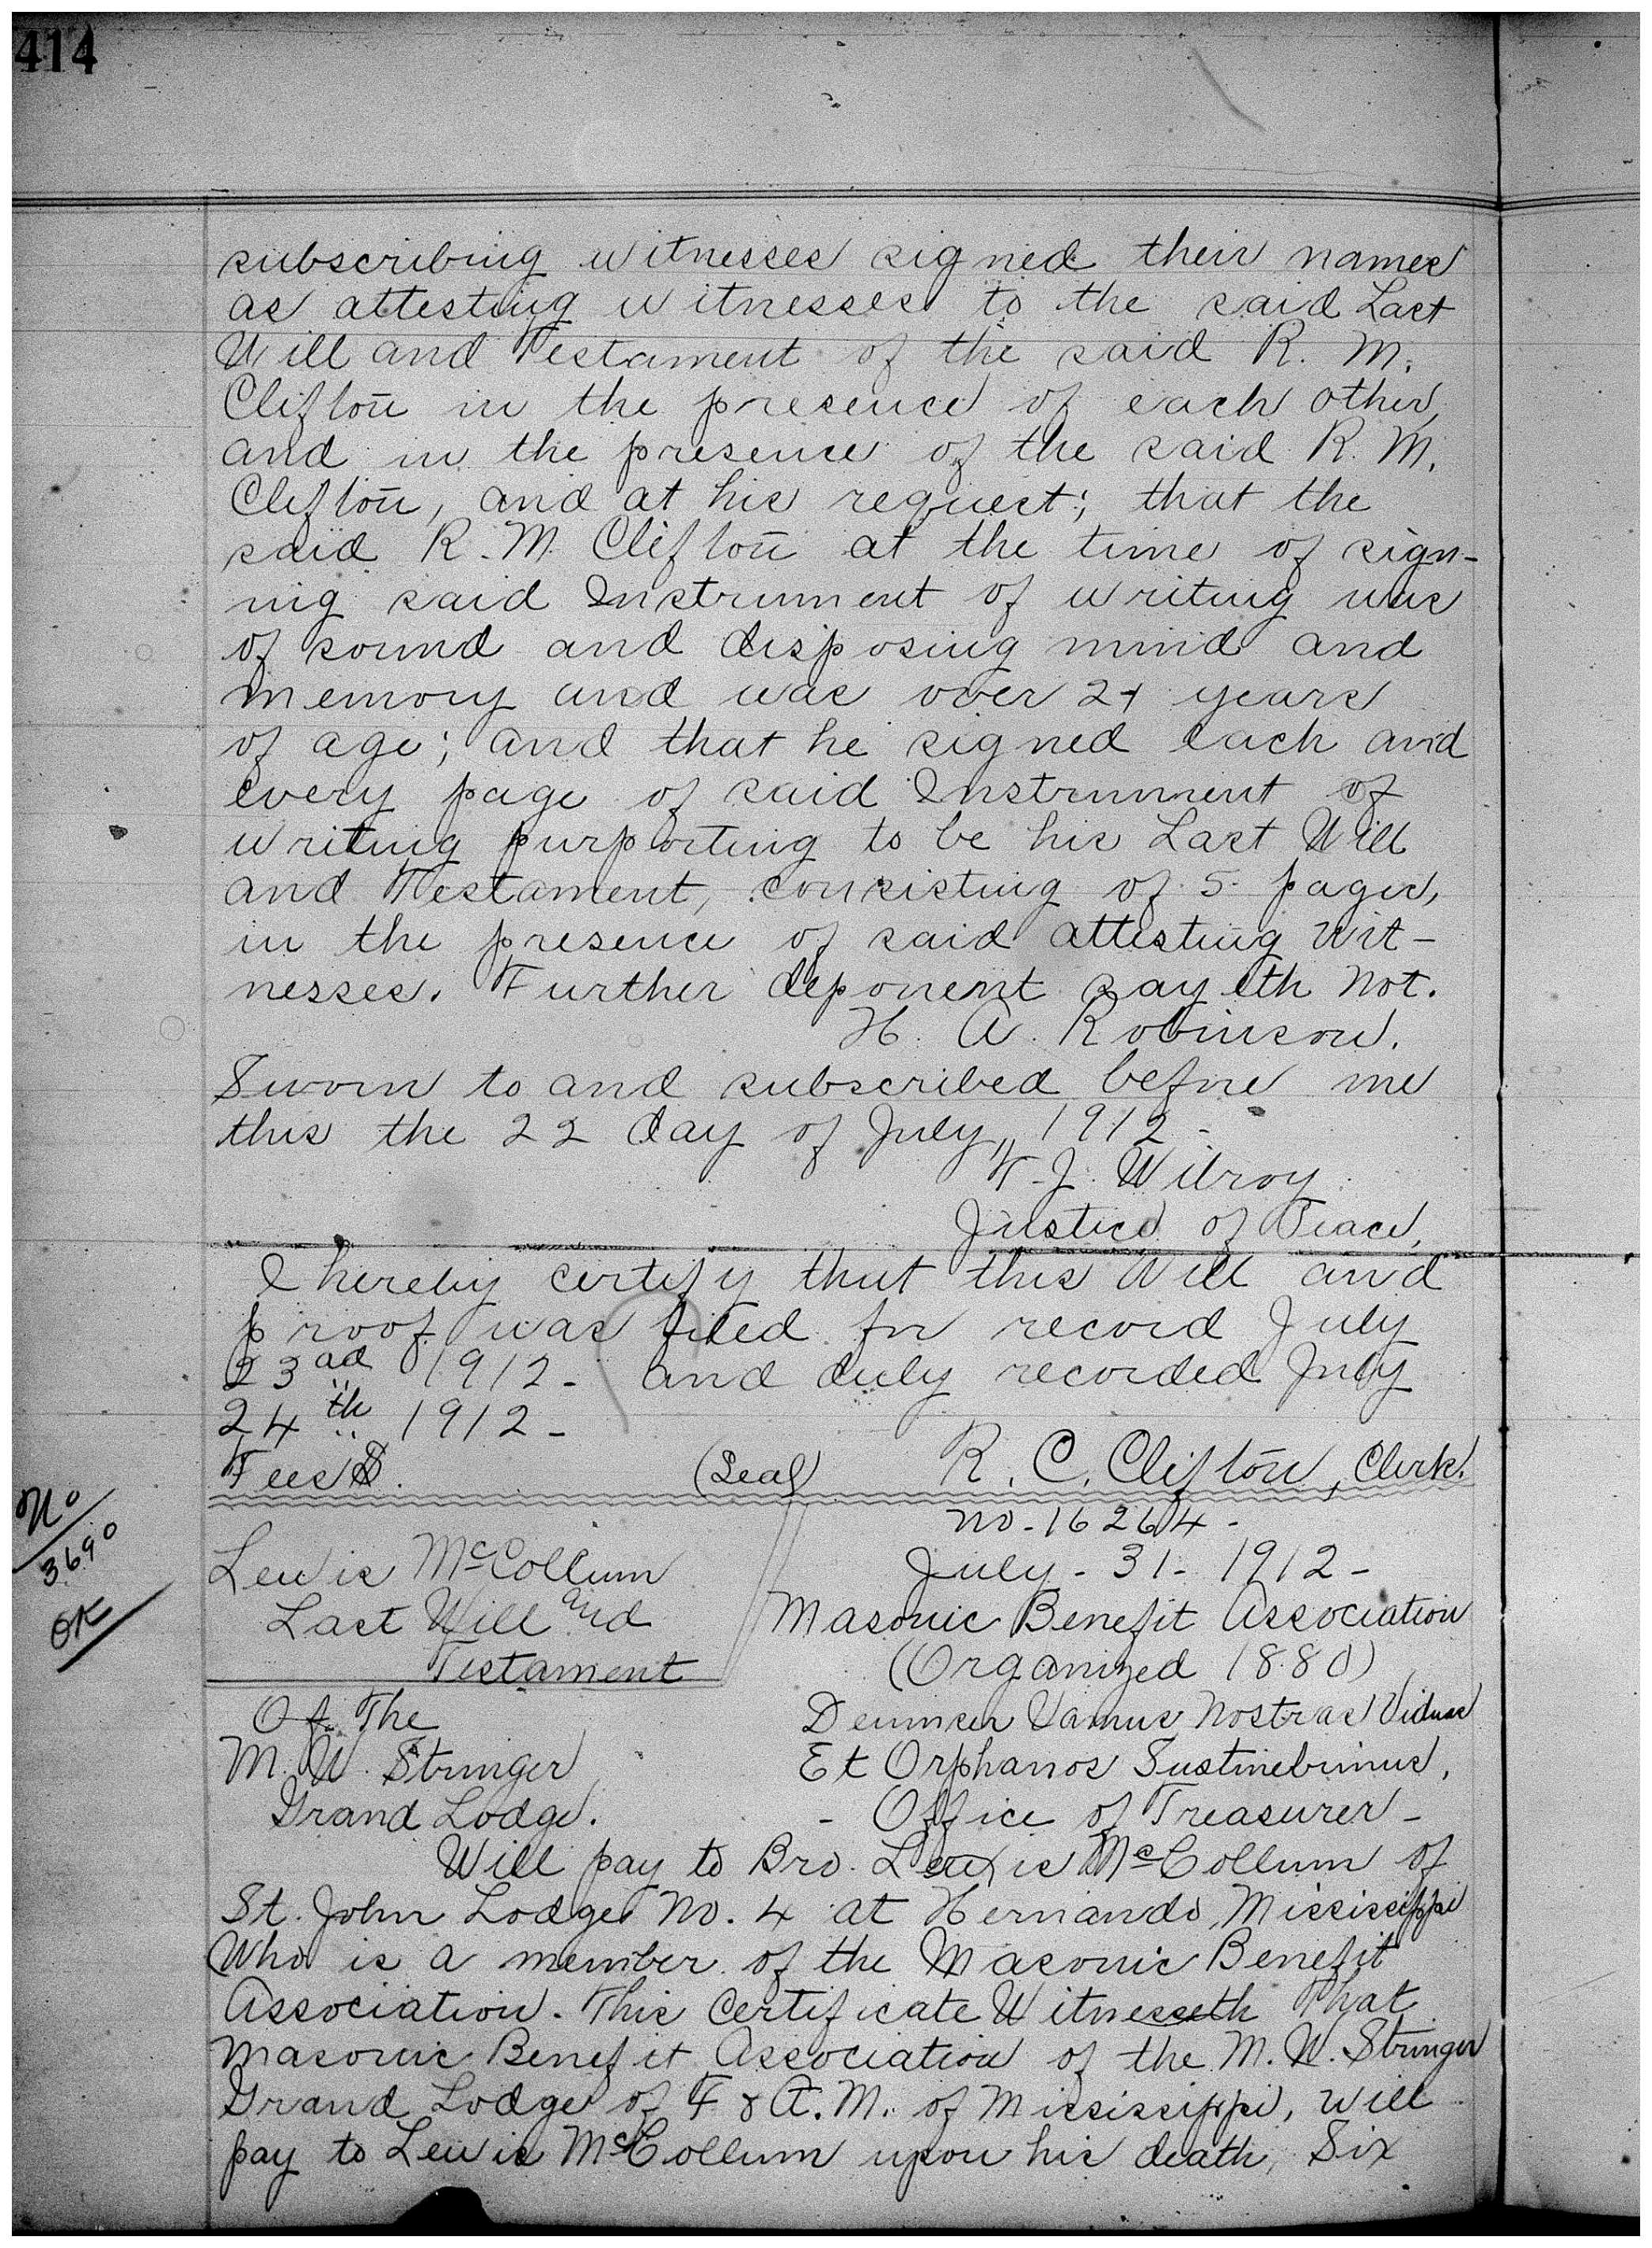 414
subscribing witnesses signed their names
as attesting witnesses to the said Last
Will and Testament of the said R. M.
Clifton in the presence of each other,
and in the presence of the said R. M.
Clifton, and at his request; that the
said R. M. Clifton at the time of sign-
ing said Instrument of writing was
of sound and disposing mind and
memory and was over 21 years
of age; and that he signed each and
every page of said Instrument of
writing purporting to be his Last Will
and Testament, consisting of 5 pages,
in the presence of said attesting Wit-
nesses. Further deponent sayeth not.
H. A. Robinson.
Sworn to and subscribed before me
this the 22 day of July, 1912-
W. J. Wilroy
Justice of Peace.
I hereby certify that this Will and
proof was filed for record July
23rd 1912- and duly recorded July
24th 1912-
Fees $. (Seal) R. C. Clifton, Clerk.
No
3690
OK
Lewis McCollum
Last Will and
Testament
Of The
M. W. Stringer
Grand Lodge.
No-16264-
July-31-1912-
Masonic Benefit Association
(Organized 1880)
Nostras Viduas
Et Orphanos Sustinebimus,
- Office of Treasurer -
Will pay to Bro. Lewis McCollum of
St. John Lodge No. 4 at Hernando, Mississippi
Who is a member of the Masonic Benefit
Association. This Certificate Witnesseth That
Masonic Benefit Association of the M. W. Stringer
Grand Lodge of F & A. M. of Mississippi, will
pay to Lewis McCollum upon his death, Six